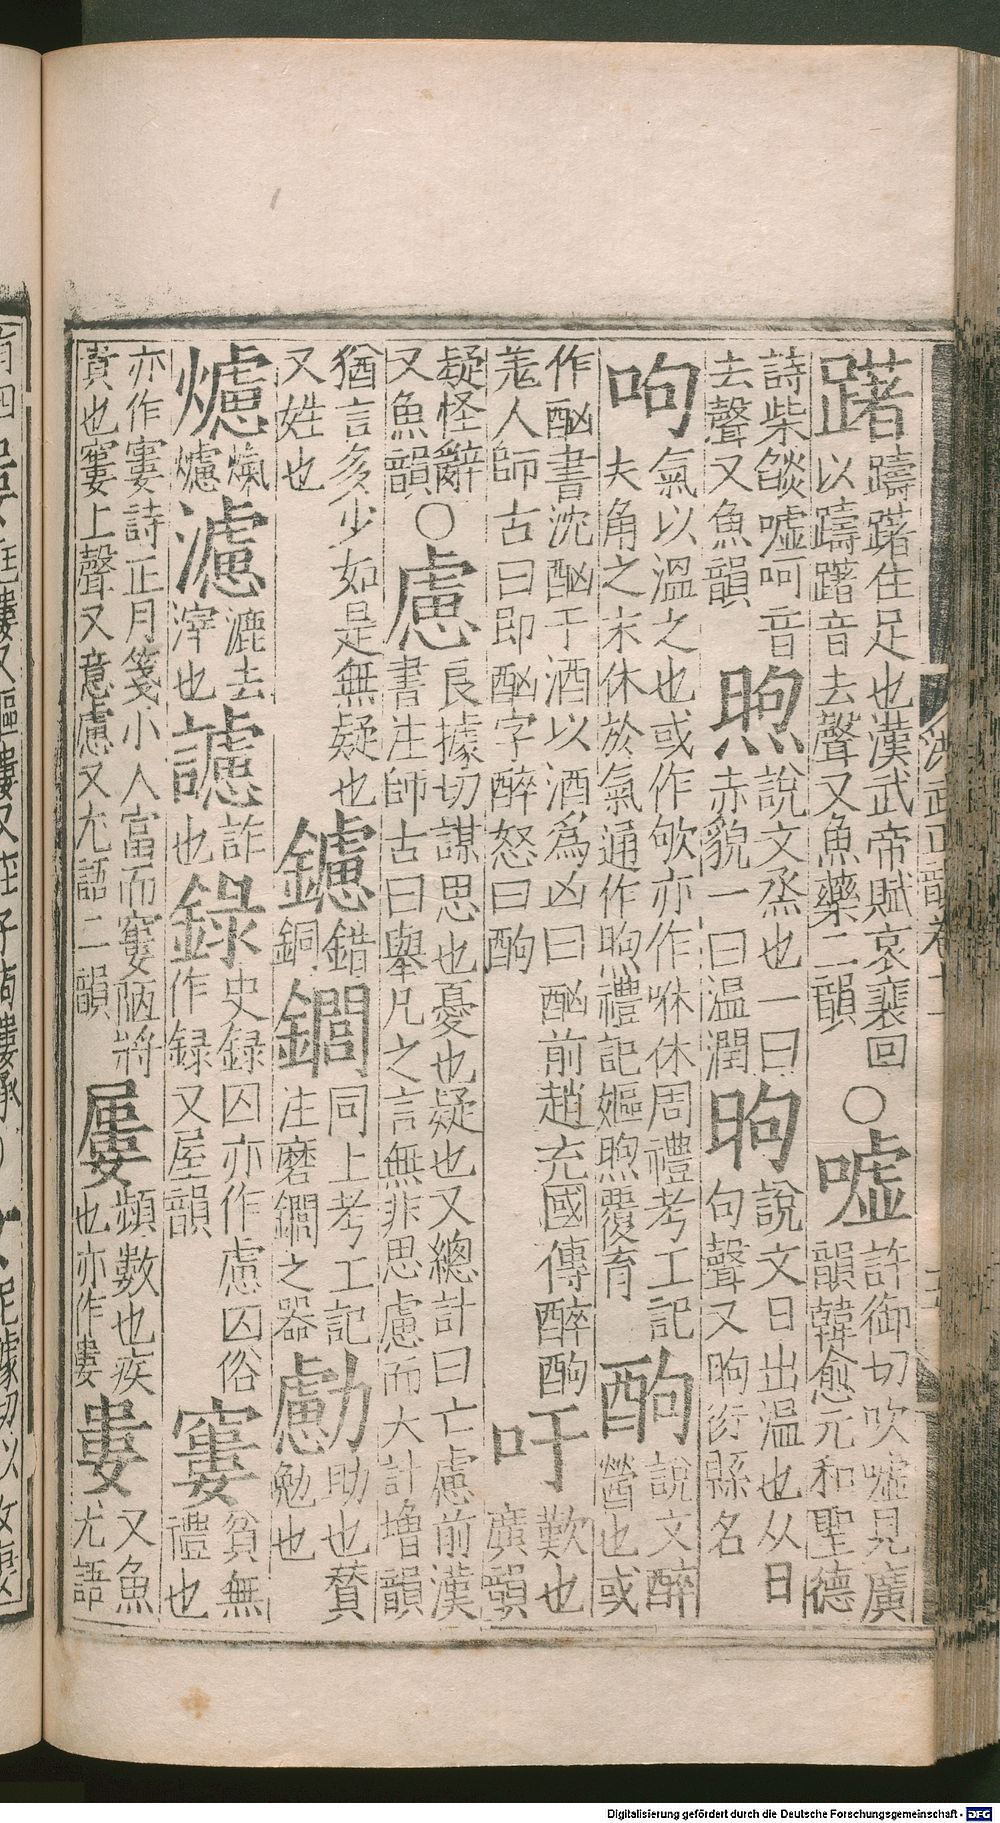 躇
躊躇住足也漢武帝賦哀裵回
以躊躇音去聲又魚藥二韻
○噓
許御切吹噓見廣
韻韓愈元和聖德
詩柴燄噓呵音
去聲又魚韻
煦
說文烝也一曰
赤貌一曰温潤
昫
說文日出温也从日
句聲又昫衍縣名
呴
氣以温之也或作欨亦作咻休周禮考工記
夫角之末休於氣通作煦禮記嫗煦覆育
酌
說文醉
醟也或
作酗書沈酗于酒以酒為凶曰酗前趙充國傳醉酌
羌人師古曰即酗字醉怒曰酌
吁
歎也
廣韻
疑怪辭
又魚韻
○慮
良據切謀思也憂也疑也又總計曰亡慮前漢
書注師古曰舉凡之言無非思慮而大計增韻
猶言多少如是無疑也
又姓也
鑢
錯
銅
鐧
同上考工記
注磨鐧之器
勴
助也贊
勉也
爈
爈
濾
漉去
滓也
謯
詐
也
録
史録囚亦作慮囚俗
作録又屋韻
窶
貧無
禮也
亦作寠詩正月箋小人富而窶陋將
貴也窶上聲又意慮又尤語二韻
屢
頻數也疾
也亦作婁
婁
又魚
尤語
Digitalisierung gefördert durch die Deutsche Forschungsgemeinschaft - DFG